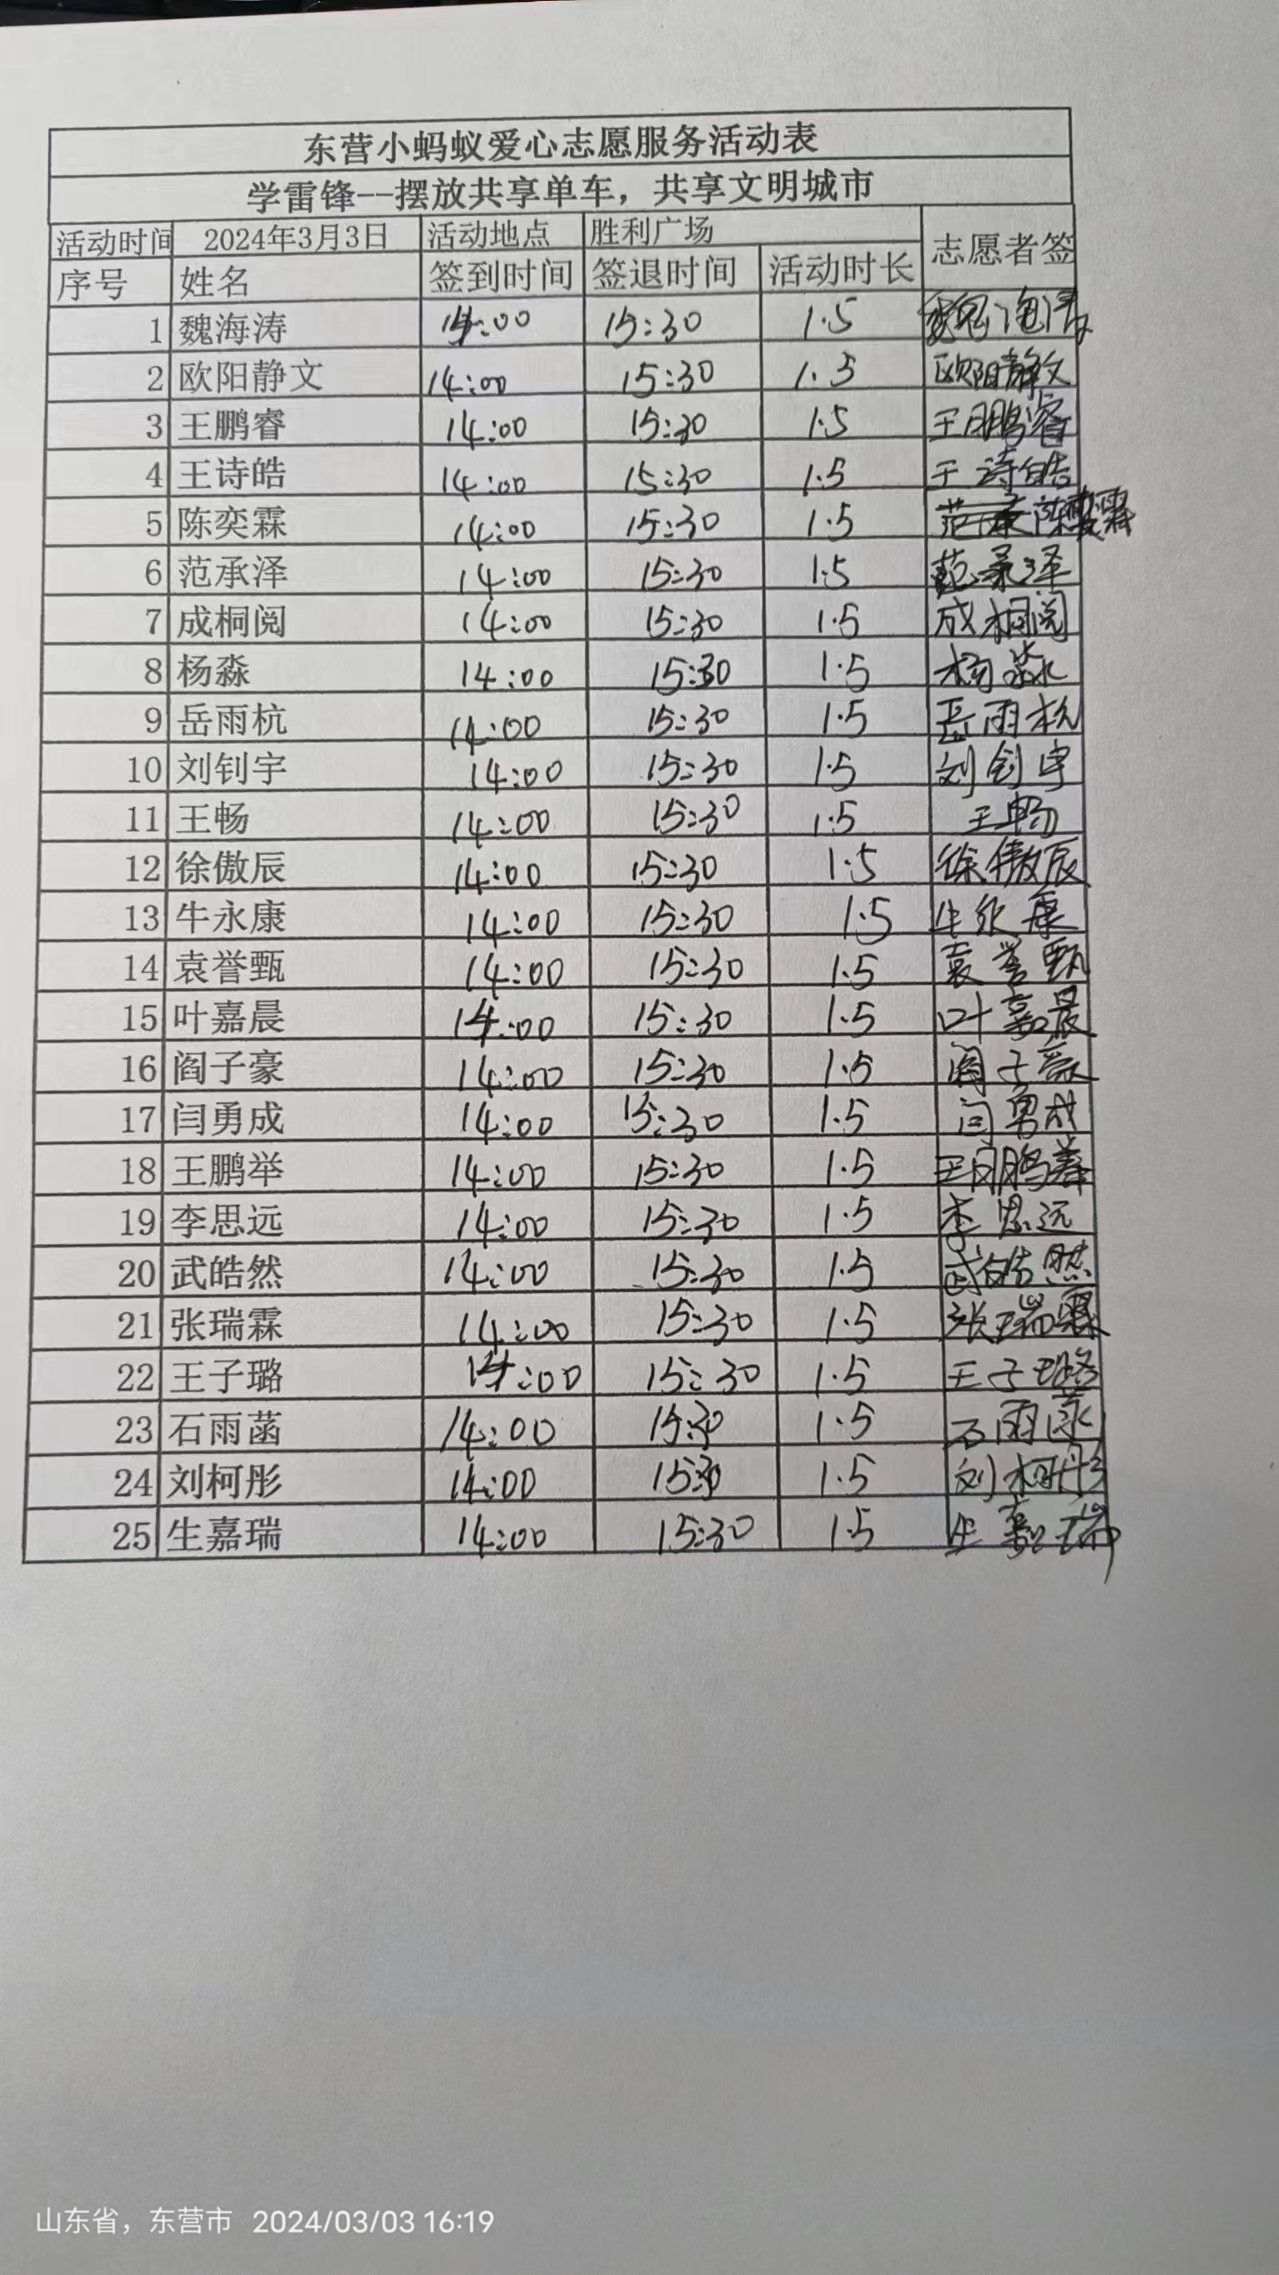 东营小蚂蚁爱心志愿服务活动表
学雷锋--摆放共享单车，共享文明城市
活动时间 2024年3月3日 活动地点 胜利广场 志愿者签
序号 姓名 签到时间 签退时间 活动时长
1 魏海涛 14:00 15:30 1.5 魏海涛
2 欧阳静文 14:00 15:30 1.5 欧阳静文
3 王鹏睿 14:00 15:30 1.5 王鹏睿
4 王诗皓 14:00 15:30 1.5 王诗皓
5 陈奕霖 14:00 15:30 1.5 陈奕霖
6 范承泽 14:00 15:30 1.5 范承泽
7 成桐阅 14:00 15:30 1.5 成桐阅
8 杨淼 14:00 15:30 1.5 杨淼
9 岳雨杭 14:00 15:30 1.5 岳雨杭
10 刘钊宇 14:00 15:30 1.5 刘钊宇
11 王畅 14:00 15:30 1.5 王畅
12 徐傲辰 14:00 15:30 1.5 徐傲辰
13 牛永康 14:00 15:30 1.5 牛永康
14 袁誉甄 14:00 15:30 1.5 袁誉甄
15 叶嘉晨 14:00 15:30 1.5 叶嘉晨
16 阎子豪 14:00 15:30 1.5 阎子豪
17 闫勇成 14:00 15:30 1.5 闫勇成
18 王鹏举 14:00 15:30 1.5 王鹏举
19 李思远 14:00 15:30 1.5 李思远
20 武皓然 14:00 15:30 1.5 武皓然
21 张瑞霖 14:00 15:30 1.5 张瑞霖
22 王子璐 14:00 15:30 1.5 王子璐
23 石雨菡 14:00 15:30 1.5 石雨菡
24 刘柯彤 14:00 15:30 1.5 刘柯彤
25 生嘉瑞 14:00 15:30 1.5 生嘉瑞
山东省，东营市 2024/03/03 16:19